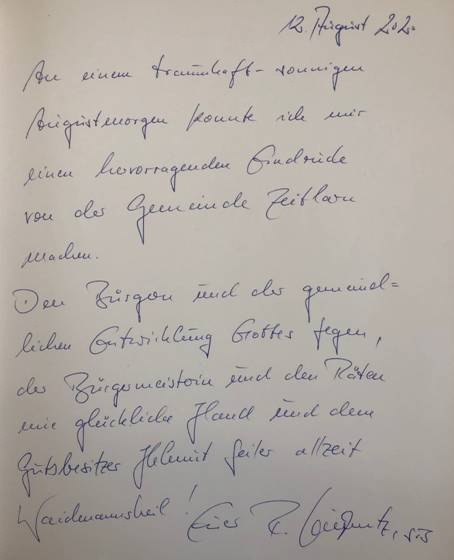 12. August 2020
An einem traumhaft-sonnigen
Augustmorgen konnte ich mir
einen hervorragenden Eindruck
von der Gemeinde Zeitlarn
machen.
Den Bürgern und der gemeind=
lichen Entwicklung Gottes Segen,
der Bürgermeisterin und den Räten
eine glückliche Hand und dem
Gutsbesitzer Helmut Seiler allzeit
Waidmannsheil! Euer